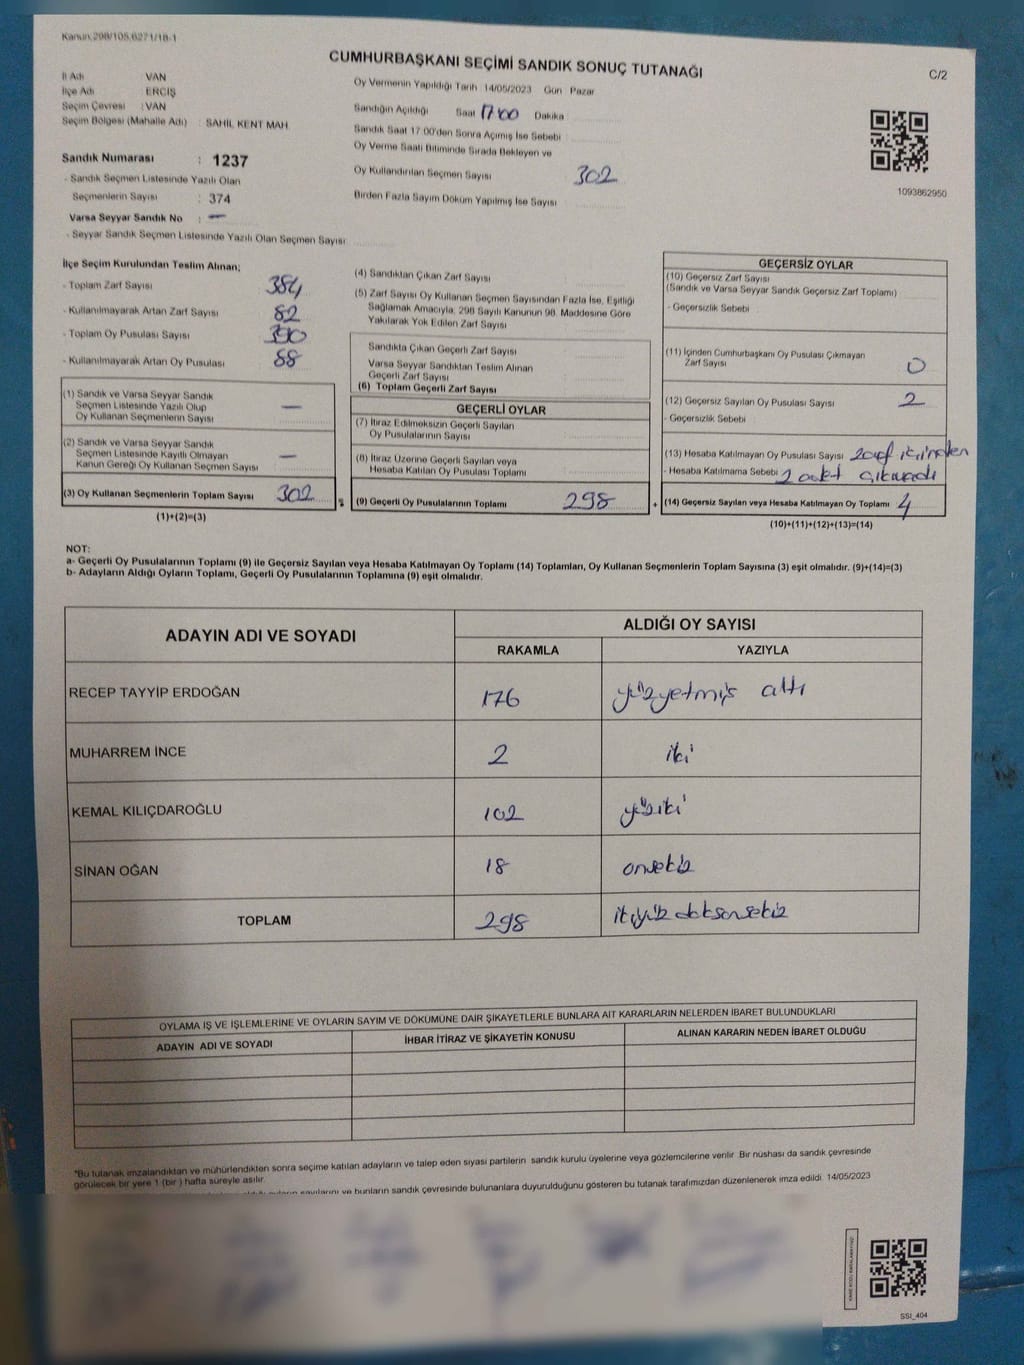 Kanun.298/105,6271/18-1
CUMHURBAŞKANI SEÇİMİ SANDIK SONUÇ TUTANAĞI
C/2
İl Adı VAN
İlçe Adı : ERCİŞ
Seçim Çevresi : VAN
Seçim Bölgesi (Mahalle Adı) : SAHİL KENT MAH.
Sandık Numarası : 1237
- Sandık Seçmen Listesinde Yazılı Olan
Seçmenlerin Sayısı : 374
Varsa Seyyar Sandık No : —
- Seyyar Sandık Seçmen Listesinde Yazılı Olan Seçmen Sayısı
Oy Vermenin Yapıldığı Tarih 14/05/2023 Gün Pazar
Sandığın Açıldığı Saat 17 00 Dakika
Sandık Saat 17:00'den Sonra Açılmış İse Sebebi
Oy Verme Saati Bitiminde Sırada Bekleyen ve
Oy Kullandırılan Seçmen Sayısı 302
Birden Fazla Sayım Döküm Yapılmış İse Sayısı
1093862950
İlçe Seçim Kurulundan Teslim Alınan;
- Toplam Zarf Sayısı 384
- Kullanılmayarak Artan Zarf Sayısı 82
- Toplam Oy Pusulası Sayısı 390
- Kullanılmayarak Artan Oy Pusulası 88
(1) Sandık ve Varsa Seyyar Sandık
Seçmen Listesinde Yazılı Olup
Oy Kullanan Seçmenlerin Sayısı —
(2) Sandık ve Varsa Seyyar Sandık
Seçmen Listesinde Kayıtlı Olmayan
Kanun Gereği Oy Kullanan Seçmen Sayısı —
(3) Oy Kullanan Seçmenlerin Toplam Sayısı 302
(1)+(2)=(3)
(4) Sandıktan Çıkan Zarf Sayısı
(5) Zarf Sayısı Oy Kullanan Seçmen Sayısından Fazla İse, Eşitliği
Sağlamak Amacıyla, 298 Sayılı Kanunun 98. Maddesine Göre
Yakılarak Yok Edilen Zarf Sayısı
Sandıkta Çıkan Geçerli Zarf Sayısı
Varsa Seyyar Sandıktan Teslim Alınan
Geçerli Zarf Sayısı
(6) Toplam Geçerli Zarf Sayısı
GEÇERLİ OYLAR
(7) İtiraz Edilmeksizin Geçerli Sayılan
Oy Pusulalarının Sayısı
(8) İtiraz Üzerine Geçerli Sayılan veya
Hesaba Katılan Oy Pusulası Toplamı
(9) Geçerli Oy Pusulalarının Toplamı 298
+
GEÇERSİZ OYLAR
(10) Geçersiz Zarf Sayısı
(Sandık ve Varsa Seyyar Sandık Geçersiz Zarf Toplamı)
- Geçersizlik Sebebi
(11) İçinden Cumhurbaşkanı Oy Pusulası Çıkmayan
Zarf Sayısı 0
(12) Geçersiz Sayılan Oy Pusulası Sayısı 2
- Geçersizlik Sebebi
(13) Hesaba Katılmayan Oy Pusulası Sayısı 2 zarf içinden
- Hesaba Katılmama Sebebi 2 adet çıkmadı
(14) Geçersiz Sayılan veya Hesaba Katılmayan Oy Toplamı 4
(10)+(11)+(12)+(13)=(14)
NOT:
a- Geçerli Oy Pusulalarının Toplamı (9) ile Geçersiz Sayılan veya Hesaba Katılmayan Oy Toplamı (14) Toplamları, Oy Kullanan Seçmenlerin Toplam Sayısına (3) eşit olmalıdır. (9)+(14)=(3)
b- Adayların Aldığı Oyların Toplamı, Geçerli Oy Pusulalarının Toplamına (9) eşit olmalıdır.
ADAYIN ADI VE SOYADI
ALDIĞI OY SAYISI
RAKAMLA YAZIYLA
RECEP TAYYİP ERDOĞAN 176 yüzyetmiş altı
MUHARREM İNCE 2 iki
KEMAL KILIÇDAROĞLU 102 yüziki
SİNAN OĞAN 18 onsekiz
TOPLAM 298 ikiyüz doksansekiz
OYLAMA İŞ VE İŞLEMLERİNE VE OYLARIN SAYIM VE DÖKÜMÜNE DAİR ŞİKAYETLERLE BUNLARA AİT KARARLARIN NELERDEN İBARET BULUNDUKLARI
ADAYIN ADI VE SOYADI İHBAR İTİRAZ VE ŞİKAYETİN KONUSU ALINAN KARARIN NEDEN İBARET OLDUĞU
*Bu tutanak imzalandıktan ve mühürlendikten sonra seçime katılan adayların ve talep eden siyasi partilerin sandık kurulu üyelerine veya gözlemcilerine verilir. Bir nüshası da sandık çevresinde
görülecek bir yere 1 (bir ) hafta süreyle asılır.
sayılarını ve bunların sandık çevresinde bulunanlara duyurulduğunu gösteren bu tutanak tarafımızdan düzenlenerek imza edildi. 14/05/2023
SSI_404